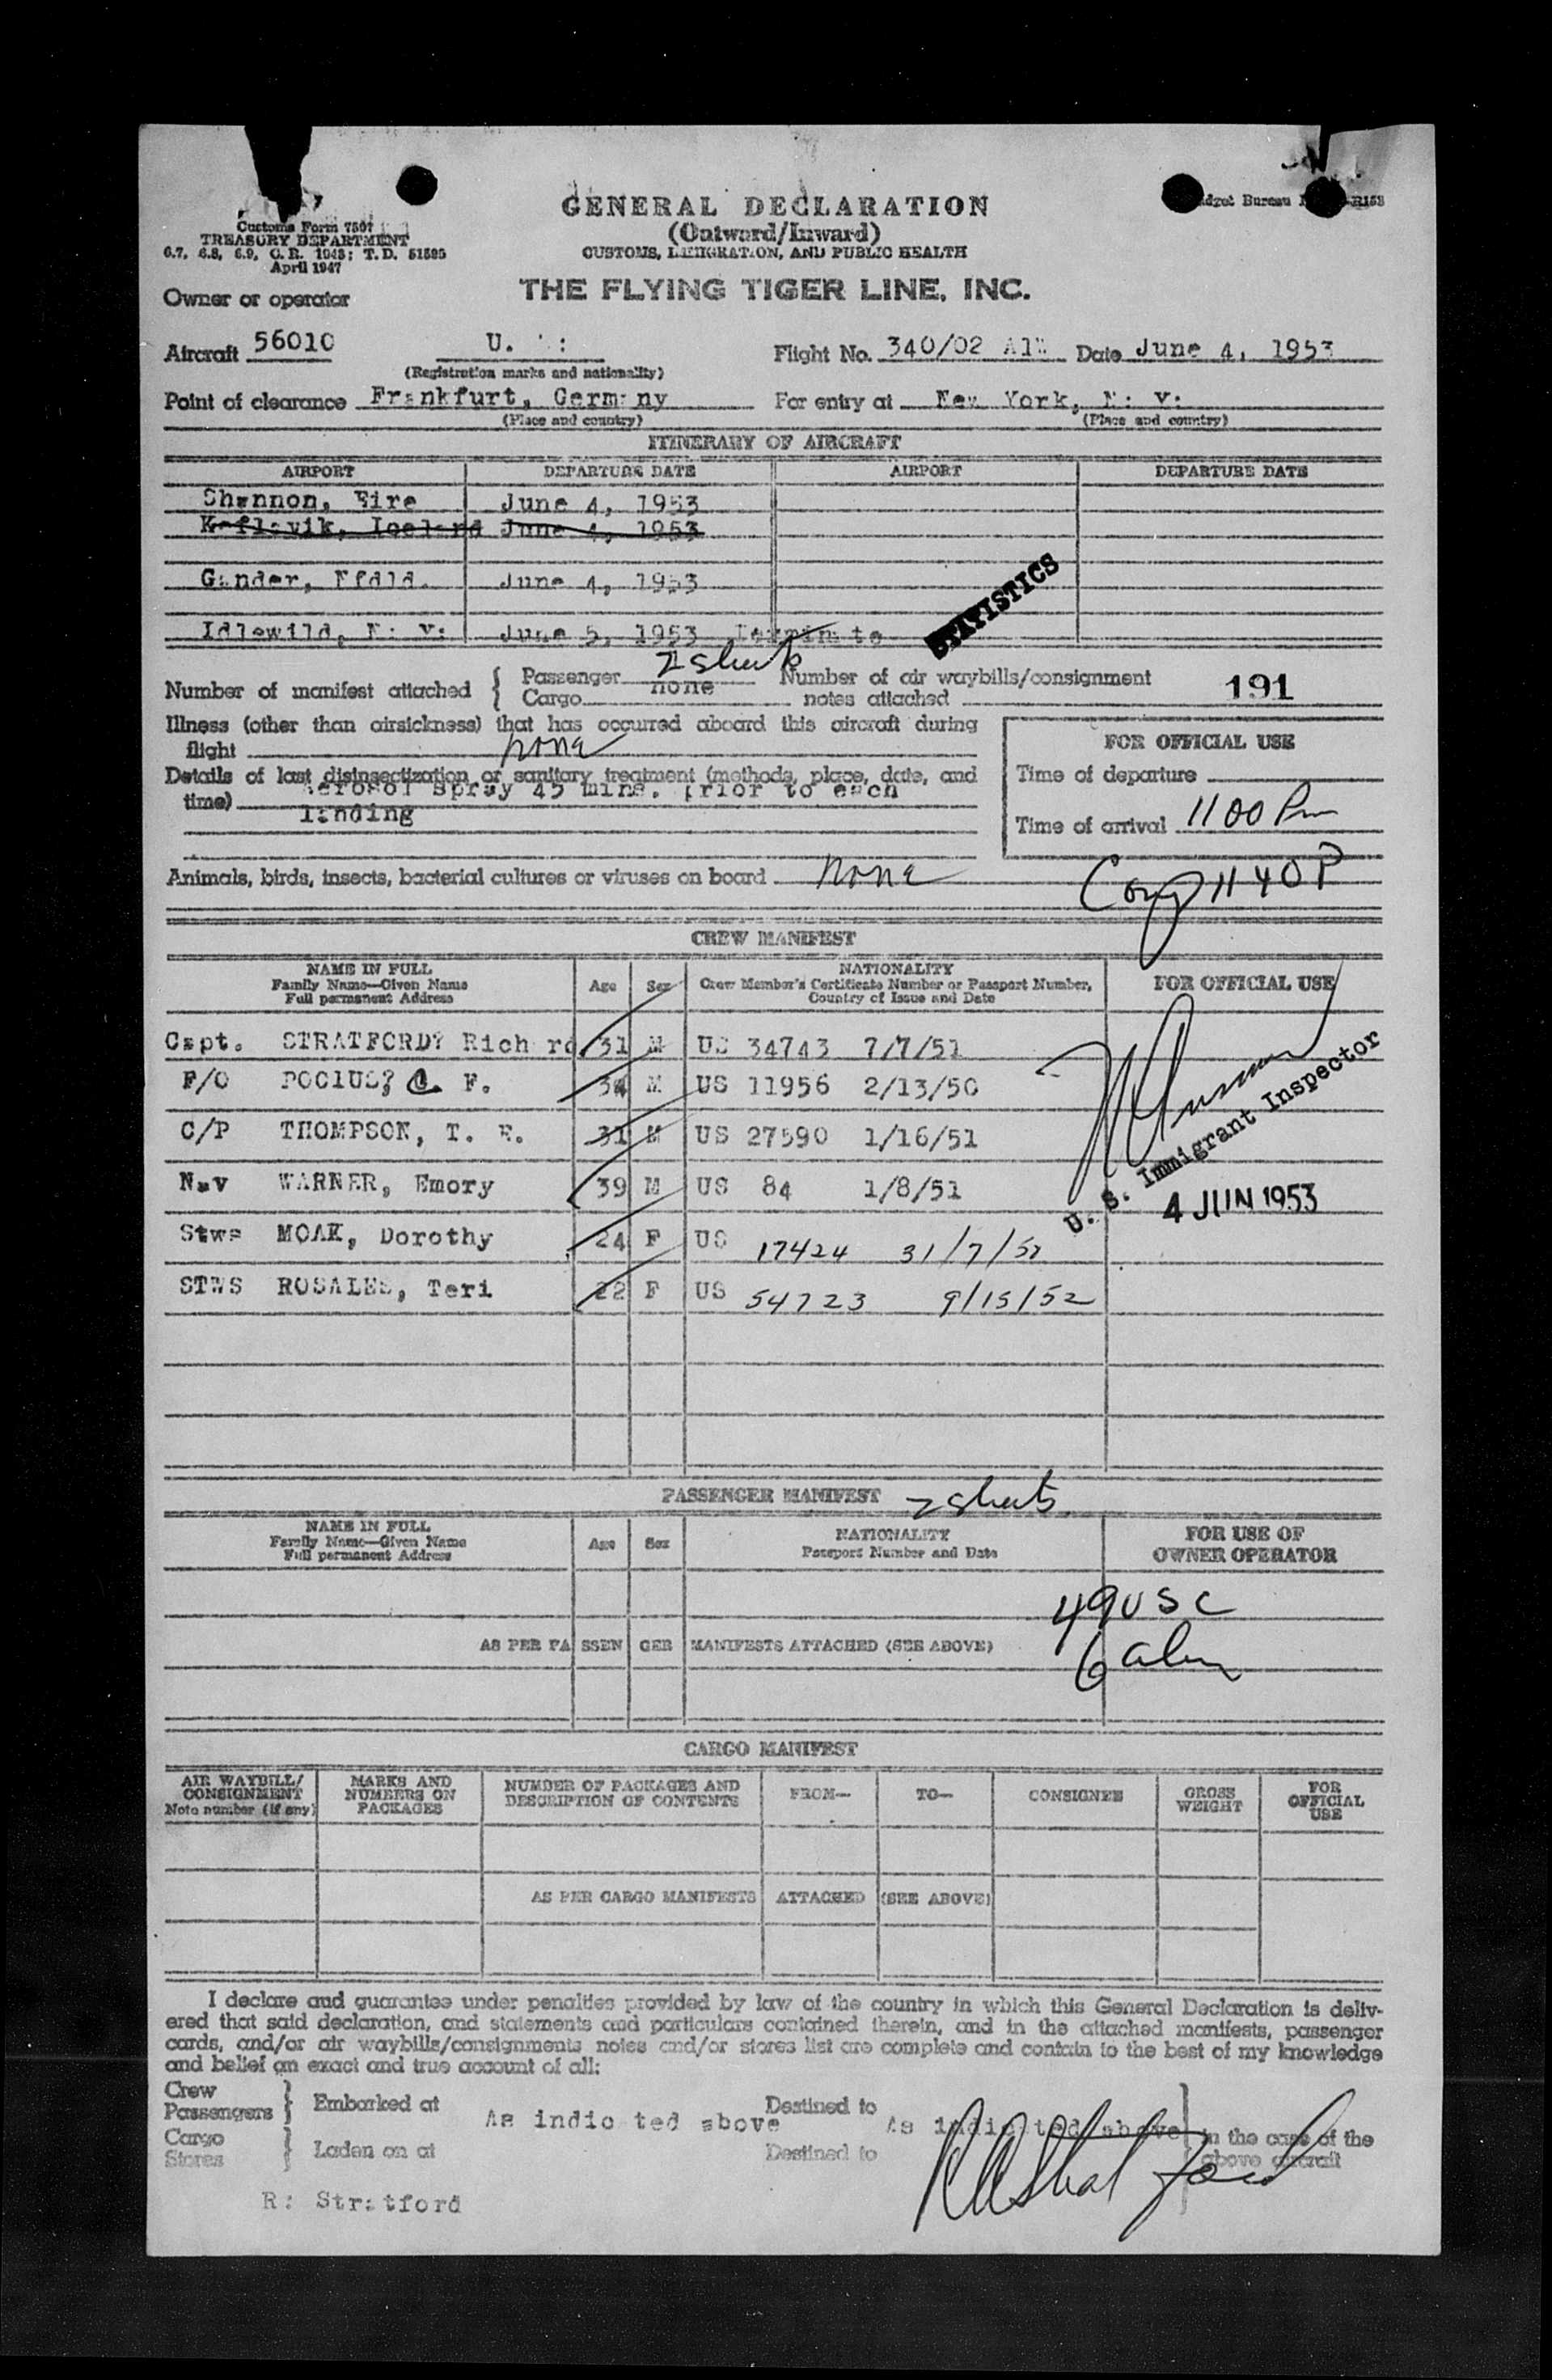 GENERAL DECLARATION
(Outward/Inward)
CUSTOMS, IMMIGRATION, AND PUBLIC HEALTH
Customs Form 7507
TREASURY DEPARTMENT
6.7, 6.8, 6.9, C.R. 1943; T.D. 51595
April 1947
Budget Bureau
THE FLYING TIGER LINE, INC.
Owner or operator
Aircraft 56010 U.
(Registration marks and nationality)
Flight No. 340/02 Date June 4, 1953
Point of clearance Frankfurt, Germany For entry at New York, N: Y:
(Place and country) (Place and country)
ITINERARY OF AIRCRAFT
AIRPORT DEPARTURE DATE AIRPORT DEPARTURE DATE
Shannon, Eire June 4, 1953
Keflavik, Iceland June 4, 1953
Gander, Nfdld. June 4, 1953
Idlewild, N: Y: June 5, 1953 Terminate
STATISTICS
Number of manifest attached { Passenger 2 sheets Number of air waybills/consignment
Cargo none notes attached 191
Illness (other than airsickness) that has occurred aboard this aircraft during
flight none
Details of last disinsectization or sanitary treatment (methods, place, date, and
time) Aerosol spray 45 mins. prior to each
landing
FOR OFFICIAL USE
Time of departure
Time of arrival 1100 Pm
Animals, birds, insects, bacterial cultures or viruses on board none
1140P
CREW MANIFEST
NAME IN FULL
Family Name—Given Name
Full permanent Address
Age Sex
NATIONALITY
Crew Member's Certificate Number or Passport Number,
Country of Issue and Date
FOR OFFICIAL USE
Capt. STRATFORD? Richard 31 M US 34743 7/7/51
F/O POCIUS? C. F. 34 M US 11956 2/13/50
C/P THOMPSON, T. E. 31 M US 27590 1/16/51
Nav WARNER, Emory 39 M US 84 1/8/51
Stws MOAK, Dorothy 24 F US 17424 31/7/51
STWS ROSALES, Teri 22 F US 54723 9/15/52
U. S. Immigrant Inspector
4 JUN 1953
PASSENGER MANIFEST 2 sheets
NAME IN FULL
Family Name—Given Name
Full permanent Address
Age Sex
NATIONALITY
Passport Number and Date
FOR USE OF
OWNER OPERATOR
49 USC
AS PER PASSENGER MANIFESTS ATTACHED (SEE ABOVE)
6 alien
CARGO MANIFEST
AIR WAYBILL/
CONSIGNMENT
Note number (if any)
MARKS AND
NUMBERS ON
PACKAGES
NUMBER OF PACKAGES AND
DESCRIPTION OF CONTENTS
FROM— TO— CONSIGNEE
GROSS
WEIGHT
FOR
OFFICIAL
USE
AS PER CARGO MANIFESTS ATTACHED (SEE ABOVE)
I declare and guarantee under penalties provided by law of the country in which this General Declaration is deliv-
ered that said declaration, and statements and particulars contained therein, and in the attached manifests, passenger
cards, and/or air waybills/consignments notes and/or stores list are complete and contain to the best of my knowledge
and belief an exact and true account of all:
Crew
Passengers } Embarked at As indicated above Destined to As indicated above
Cargo
Stores } Laden on at Destined to
in the case of the
above aircraft
R: Stratford